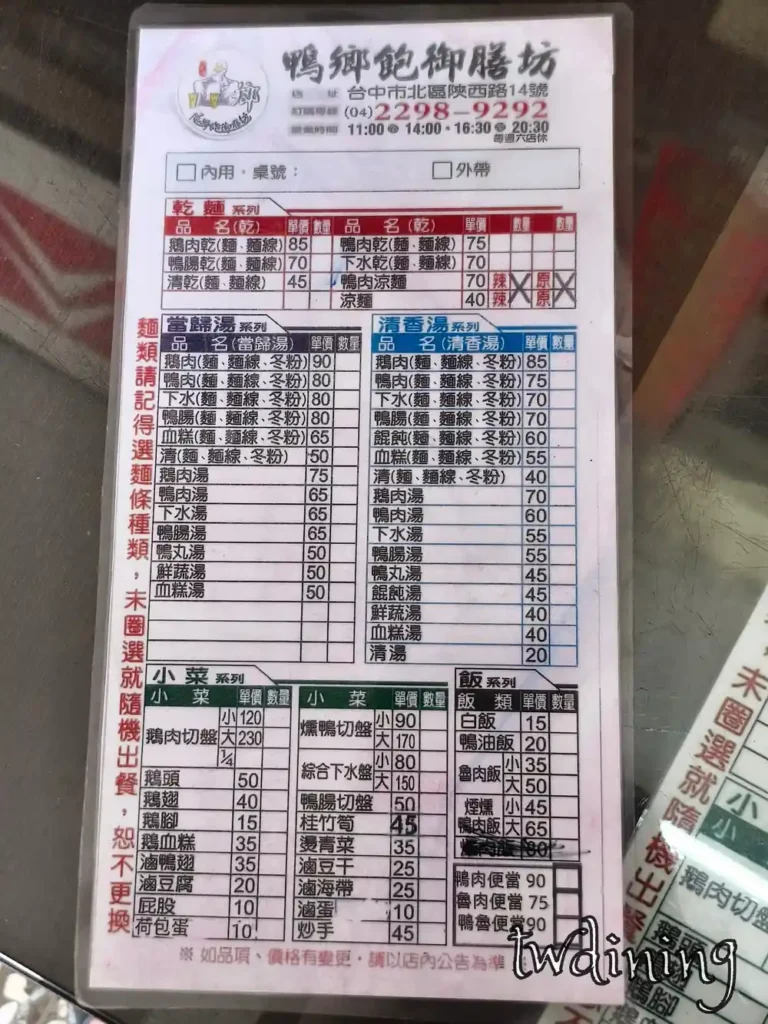 鴨鄉飽御膳坊
鄉
店 址 台中市北區陝西路14號
訂購專線 (04)2298-9292
營業時間 11:00~14:00・16:30~20:30
每週六店休
□內用，桌號： □外帶
乾麵系列
品 名(乾) 單價 數量 品 名(乾) 單價 數量 數量
鵝肉乾(麵、麵線) 85 鴨肉乾(麵、麵線) 75
鴨腸乾(麵、麵線) 70 下水乾(麵、麵線) 70
清乾(麵、麵線) 45 鴨肉涼麵 70 辣 原
涼麵 40 辣 原
麵類請記得選麵條種類，未圈選就隨機出餐，恕不更換
當歸湯系列
品 名(當歸湯) 單價 數量
鵝肉(麵、麵線、冬粉) 90
鴨肉(麵、麵線、冬粉) 80
下水(麵、麵線、冬粉) 80
鴨腸(麵、麵線、冬粉) 80
血糕(麵、麵線、冬粉) 65
清(麵、麵線、冬粉) 50
鵝肉湯 75
鴨肉湯 65
下水湯 65
鴨腸湯 65
鴨丸湯 50
鮮蔬湯 50
血糕湯 50
清香湯系列
品 名(清香湯) 單價 數量
鵝肉(麵、麵線、冬粉) 85
鴨肉(麵、麵線、冬粉) 75
下水(麵、麵線、冬粉) 70
鴨腸(麵、麵線、冬粉) 70
餛飩(麵、麵線、冬粉) 60
血糕(麵、麵線、冬粉) 55
清(麵、麵線、冬粉) 40
鵝肉湯 70
鴨肉湯 60
下水湯 55
鴨腸湯 55
鴨丸湯 45
餛飩湯 45
鮮蔬湯 40
血糕湯 40
清湯 20
小菜系列
小 菜 單價 數量
鵝肉切盤 小 120
大 230
¼
鵝頭 50
鵝翅 40
鵝腳 15
鵝血糕 35
滷鴨翅 35
滷豆腐 20
屁股 10
荷包蛋 10
小 菜 單價 數量
燻鴨切盤 小 90
大 170
綜合下水盤 小 80
大 150
鴨腸切盤 50
桂竹筍 45
燙青菜 35
滷豆干 25
滷海帶 25
滷蛋 10
炒手 45
飯系列
飯 類 單價 數量
白飯 15
鴨油飯 20
魯肉飯 小 35
大 50
煙燻鴨肉飯 小 45
大 65
鴨肉便當 90
魯肉便當 75
鴨魯便當 90
※ 如品項、價格有變更，請以店內公告為準
twdining
未圈選就隨機出餐
小
小
鵝肉切盤
鵝頭
鵝翅
鵝腳